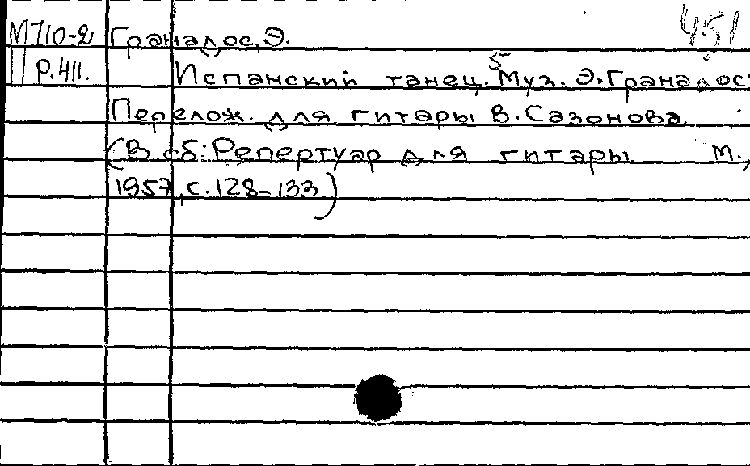 М710-2 Гранадос, Э. 451
Р.411. Испанский танец. 5 Муз. Э. Гранадос.
Перелож. для гитары В. Сазонова.
(В сб: Репертуар для гитары М.,
1957, с. 128-133)